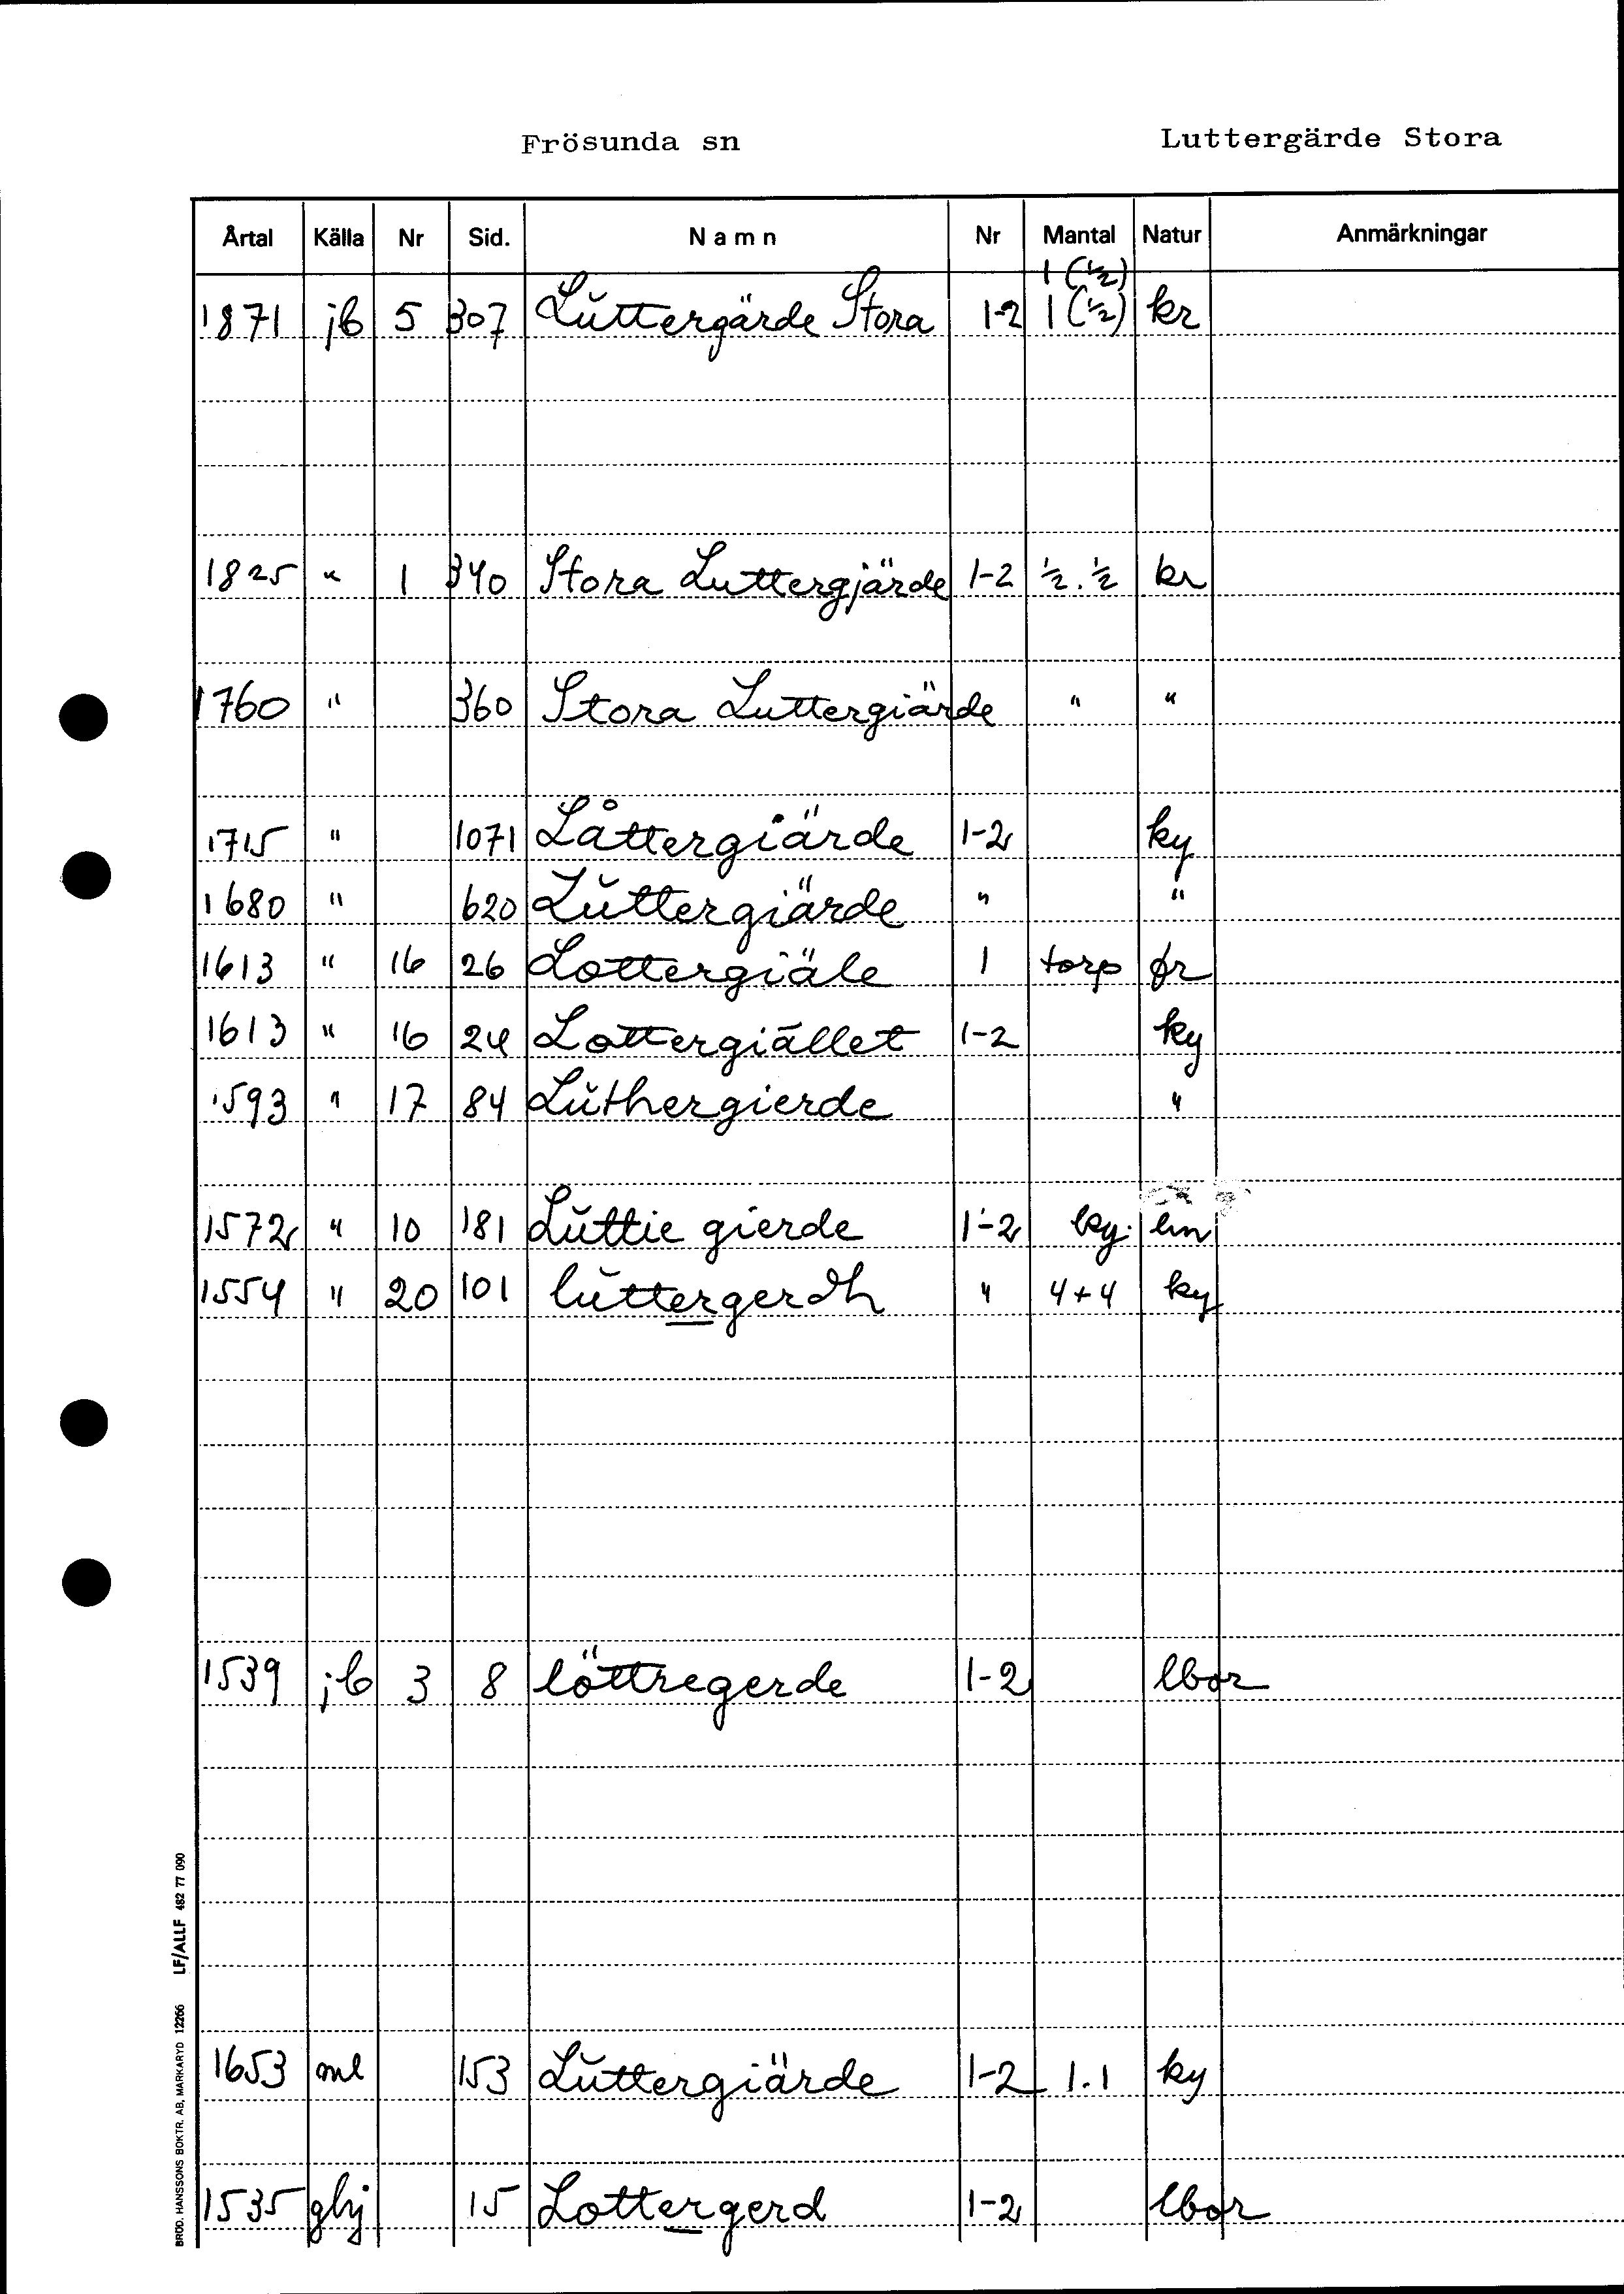 Frösunda sn Luttergärde Stora
Årtal Källa Nr Sid. Namn Nr Mantal Natur Anmärkningar
1 (½)
1871 jb 5 307 Lŭttergärde Stora 1-2 1 (½) kr
1825 " 1 340 Stora Luttergjärde 1-2 ½.½ kr
1760 " 360 Stora Luttergiärde " "
1715 " 1071 Låttergiärde 1-2 ky
1680 " 620 Lŭttergiärde " "
1613 " 16 26 Lottergiäle 1 torp fr
1613 " 16 24 Lottergiället 1-2 ky
1593 " 17 84 Lŭthergierde "
1572 " 10 181 Lŭttie gierde 1-2 ky. lm
1554 " 20 101 lŭttergerdh " 4+4 ky
1539 jb 3 8 löttregerde 1-2 lbor
1653 ml 153 Lŭttergiärde 1-2 1.1 ky
1535 ghj 15 Lottergerd 1-2 lbor
BRÖD. HANSSONS BOKTR. AB, MARKARYD 12266 LF/ALLF 482 77 090